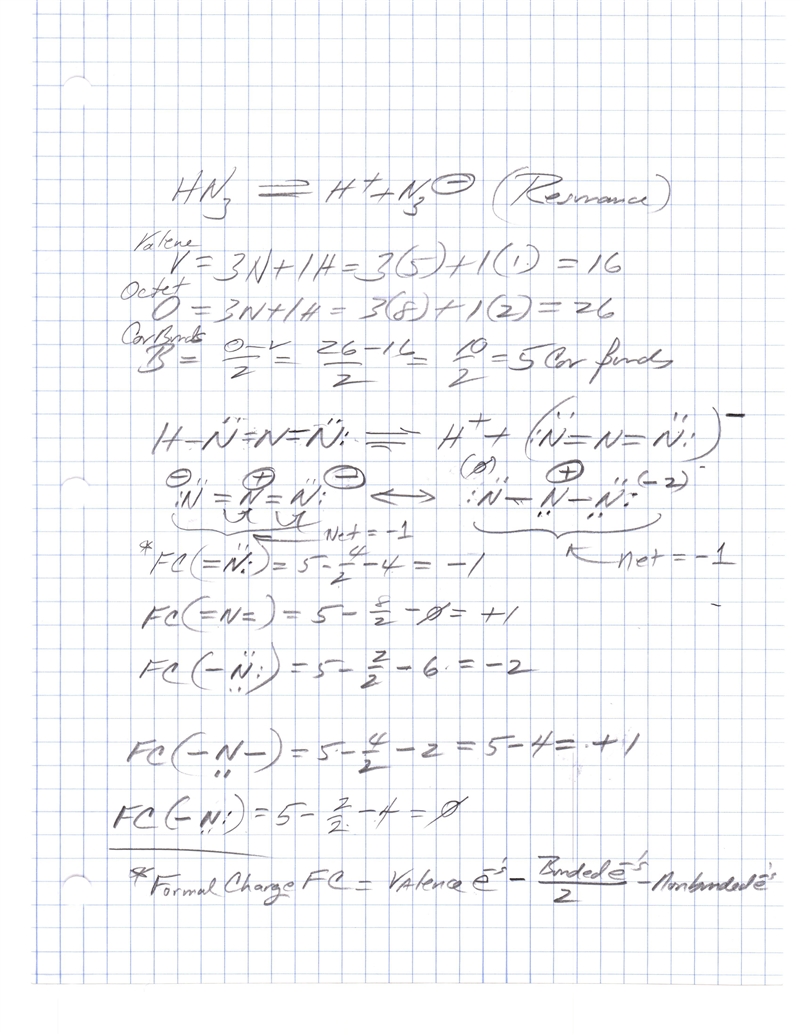 HN₃ ⇌ H⁺ + N₃⊖ (Resonance)
Valene
V = 3N + 1H = 3(5) + 1(1) = 16
Octet
O = 3N + 1H = 3(8) + 1(2) = 26
Cov Bonds
B = (O-V)/2 = (26-16)/2 = 10/2 = 5 Cov Bonds
H-N̈=N=N̈: ⇌ H⁺ + (:N̈=N=N̈:)⁻
⊖ ⊕ ⊖ (Ø) ⊕ (-2)⁻
:N̈=N=N̈: ↔ :N̈-N̤-N̤̈:
Net = -1
net = -1
*FC(=N̈:) = 5 - 4/2 - 4 = -1
FC(=N=) = 5 - 8/2 - Ø = +1
FC(-N̤̈:) = 5 - 2/2 - 6 = -2
FC(-N̤-) = 5 - 4/2 - 2 = 5 - 4 = +1
FC(-N̤:) = 5 - 2/2 - 4 = Ø
*Formal Charge FC = Valence e⁻'s - Bonded e⁻'s/2 - Nonbonded e⁻'s